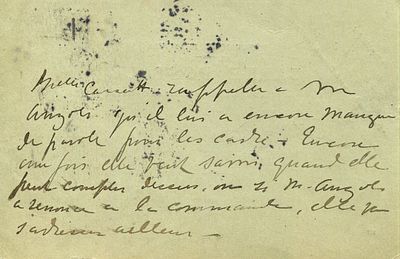 Mlle Cassatt rappelle a M
Angols qu'il lui a encore manqué
de parole pour les cadres. Encore
une fois elle veut savoir quand elle
peut compter dessus, ou si M. Angols
a renoncé a la commande, elle
s'adresser ailleurs -